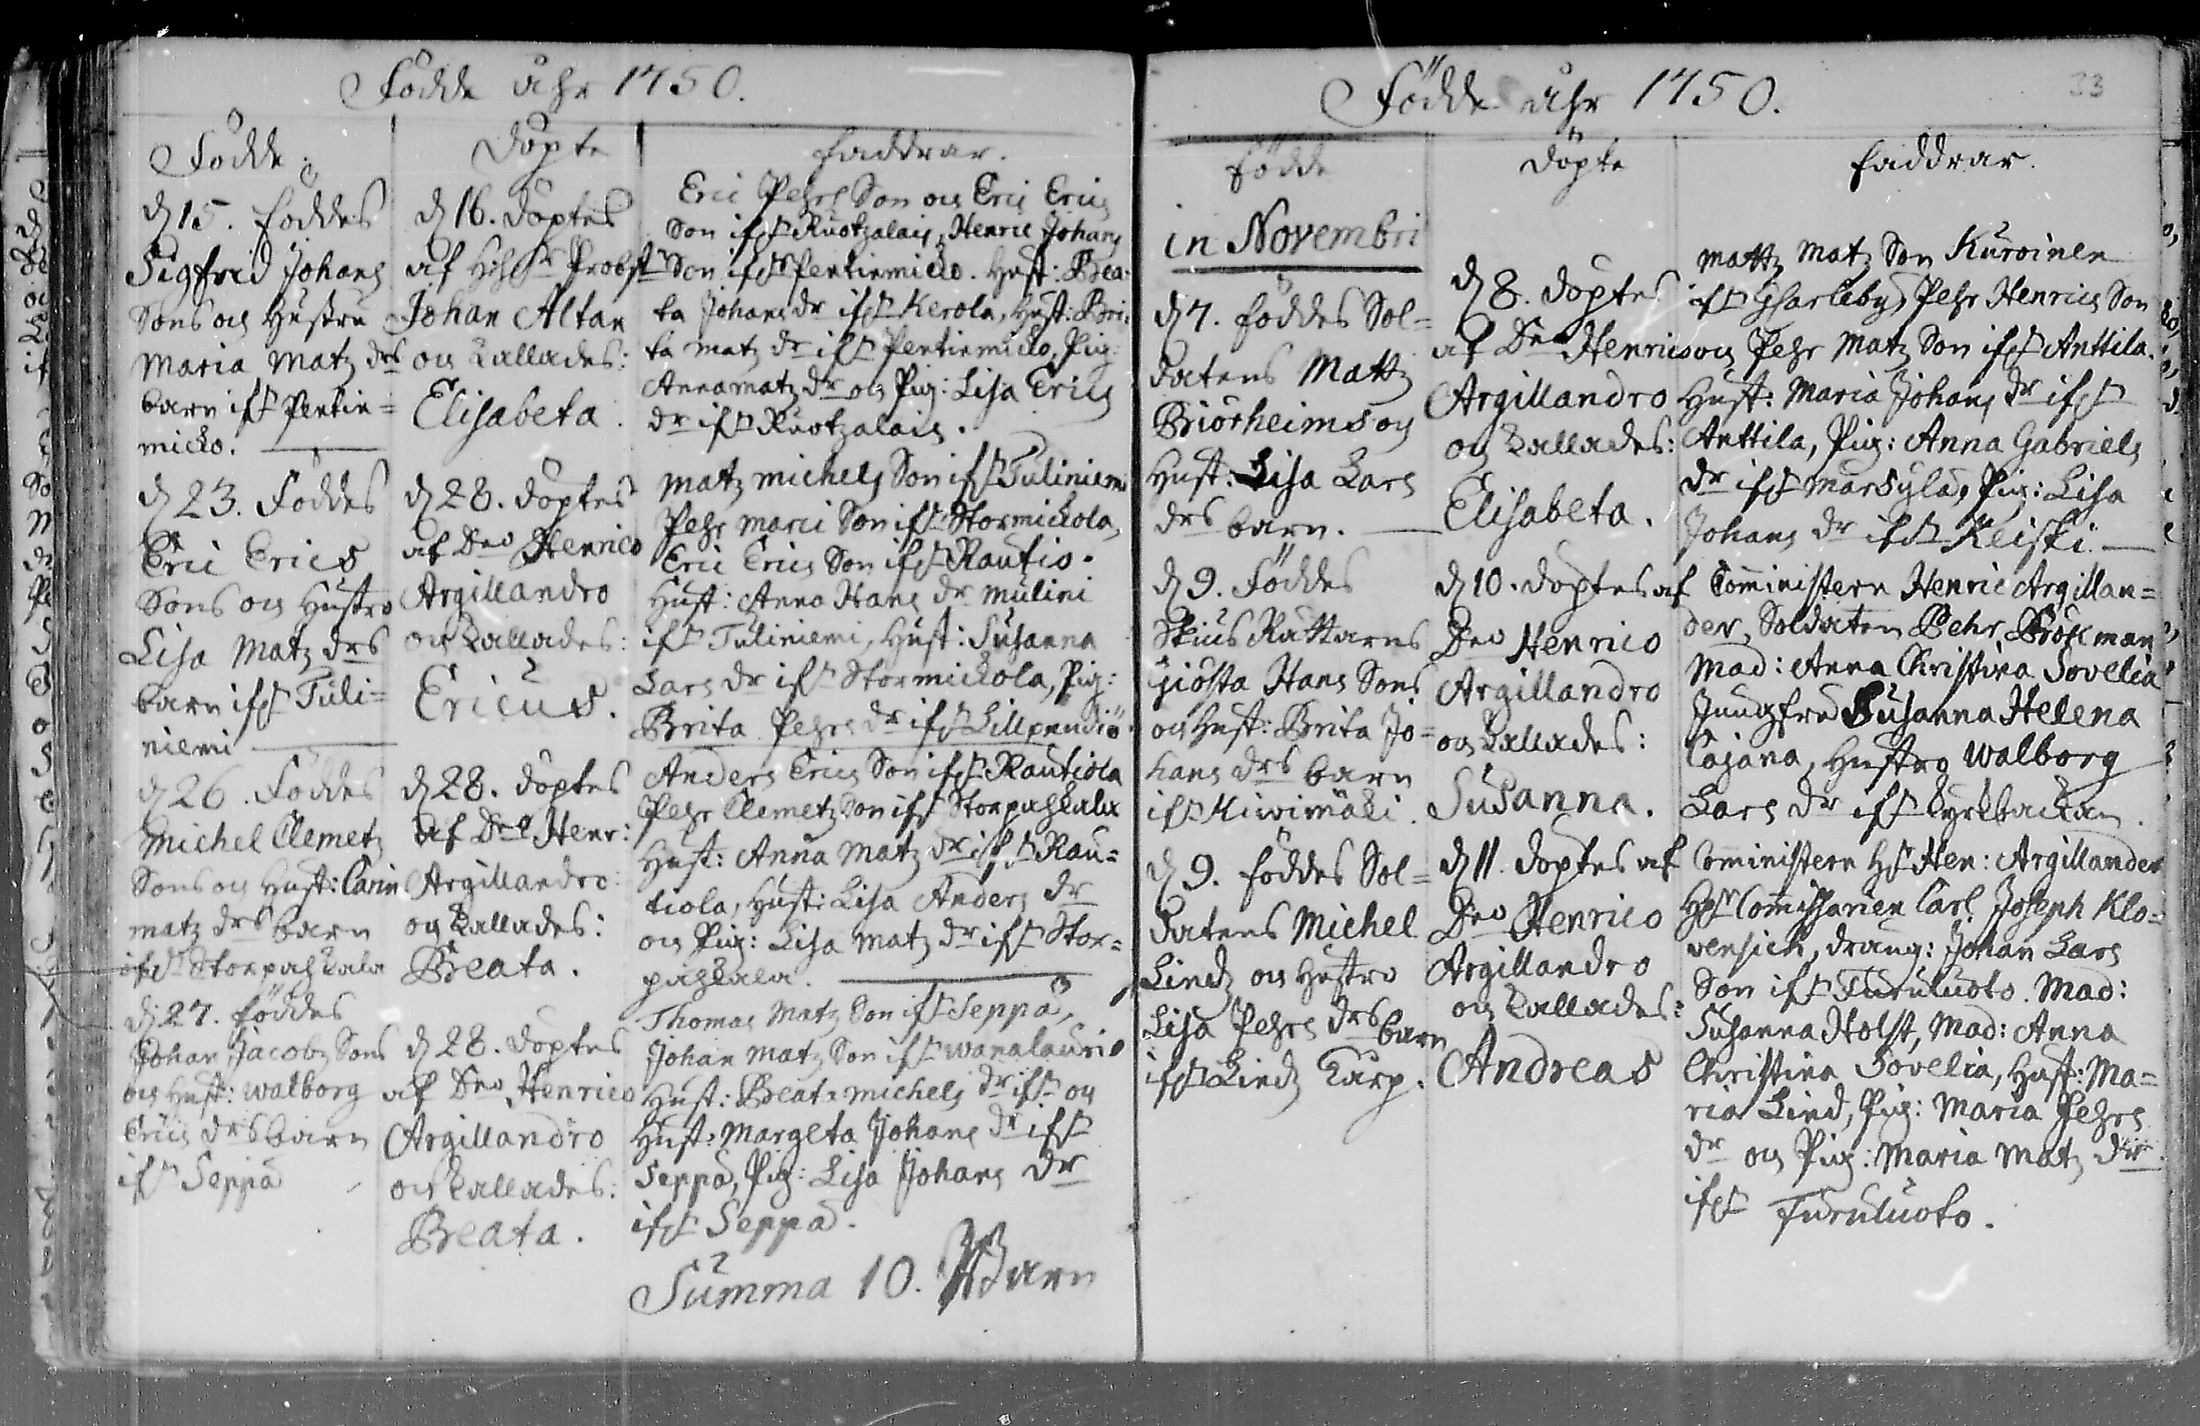 Födde åhr 1750.
Födde
d 15. föddes
Sigfrid Johans
Sons och Hustru
Maria Matz drs
barn ifr Pentin=
micko.
d 23. Föddes
Eric Erics
Sons och Hustro
Lisa Matz drs
barn ifr Tuli=
niemi
d 26. Föddes
Michel Clemetz
Sons och Hust: Carin
Matz drs barn
ifr Storpaskala
d 27. föddes
Johan Jacobz Sons
och Hust: Walborg
Erics drs barn
ifr Seppä
Döpte
d 16. döptes
af Probst
Johan Altan
och kallades:
Elisabeta.
d 28. döptes
af Dno Henrico
Argillandro
och kallades:
Ericus.
d 28. döptes
af Dno Henr:
Argillandro
och kallades:
Beata.
d 28. döptes
af Dno Henrico
Argillandro
och kallades:
Beata.
faddrar.
Eric Pehrs Son och Eric Erics
Son ifr Ruotzalais, Henric Johans
Son ifr Pentinmicko. Hust: Bea-
ta Johans dr ifr Kerola, Hust: Bri-
ta Matz dr ifr Pentinmicko, Pig:
Anna Matz dr och Pig: Lisa Erics
dr ifr Ruotzalais.
Matz Michels Son ifr Tuliniemi
Pehr Marci Son ifr Stormickola,
Eric Erics Son ifr Rautio.
Hust: Anna Hans dr Mulini
ifr Tuliniemi, Hust: Susanna
Lars dr ifr Stormickola, Pig:
Brita Pehrs dr ifr
Anders Erics Son ifr Rautiola
Pehr Clemetz Son ifr Storpaskala
Hust: Anna Matz dr ifr Rau=
tiola, Hust: Lisa Anders dr
och Pig: Lisa Matz dr ifr Stor=
paskala.
Thomas Matz Son ifr Seppä,
Johan Matz Son ifr Wanalaurio
Hust: Beata Michels dr ifr och
Hust: Margeta Johans dr ifr
Seppä, Pig: Lisa Johans dr
ifr Seppä.
Summa 10. Barn
Födde åhr 1750.
33
födde
in Novembri
d 7. föddes Sol=
datens Mattz
Biörheims och
Hust: Lisa Lars
drs barn.
d 9. Föddes
Skiusrättarens
Giösta Hans Sons
och Hust: Brita Jo=
hans drs barn
ifr Kiwimäki.
d 9. föddes Sol=
datens Michel
Lindz och Hustro
Lisa Pehrs drs barn
ifr Lindz
döpte
d 8. döptes
af Dno Henrico
Argillandro
och kallades:
Elisabeta.
d 10. döptes af
Dno Henrico
Argillandro
och kallades:
Susanna.
d 11. döptes af
Dno Henrico
Argillandro
och kallades:
Andreas
faddrar.
Mattz Matz Son Kuroinen
ifr Gharleby, Pehr Henrics Son
och Pehr Matz Son ifr Anttila.
Hust: Maria Johans dr ifr
Anttila, Pig: Anna Gabriels
dr ifr Marsyla, Pig: Lisa
Johans dr ifr Kleiski
Comministern Henric Argillan=
der, Soldaten Pehr Brökman
Mad: Anna Christina Sovelia
Jungfru Susanna Helena
Cajana, Hustro Walborg
Lars dr ifr Kyrkbackan.
Comministern Hr Hen: Argillander
Hr Commissarien Carl Joseph Klo=
wensich, dräng: Johan Lars
Son ifr Turuluoto. Mad:
Susanna Holst, Mad: Anna
Christina Sovelia, Hust: Ma=
ria Lind, Pig: Maria Pehrs
dr och Pig: Maria Matz dr
ifr Turuluoto.